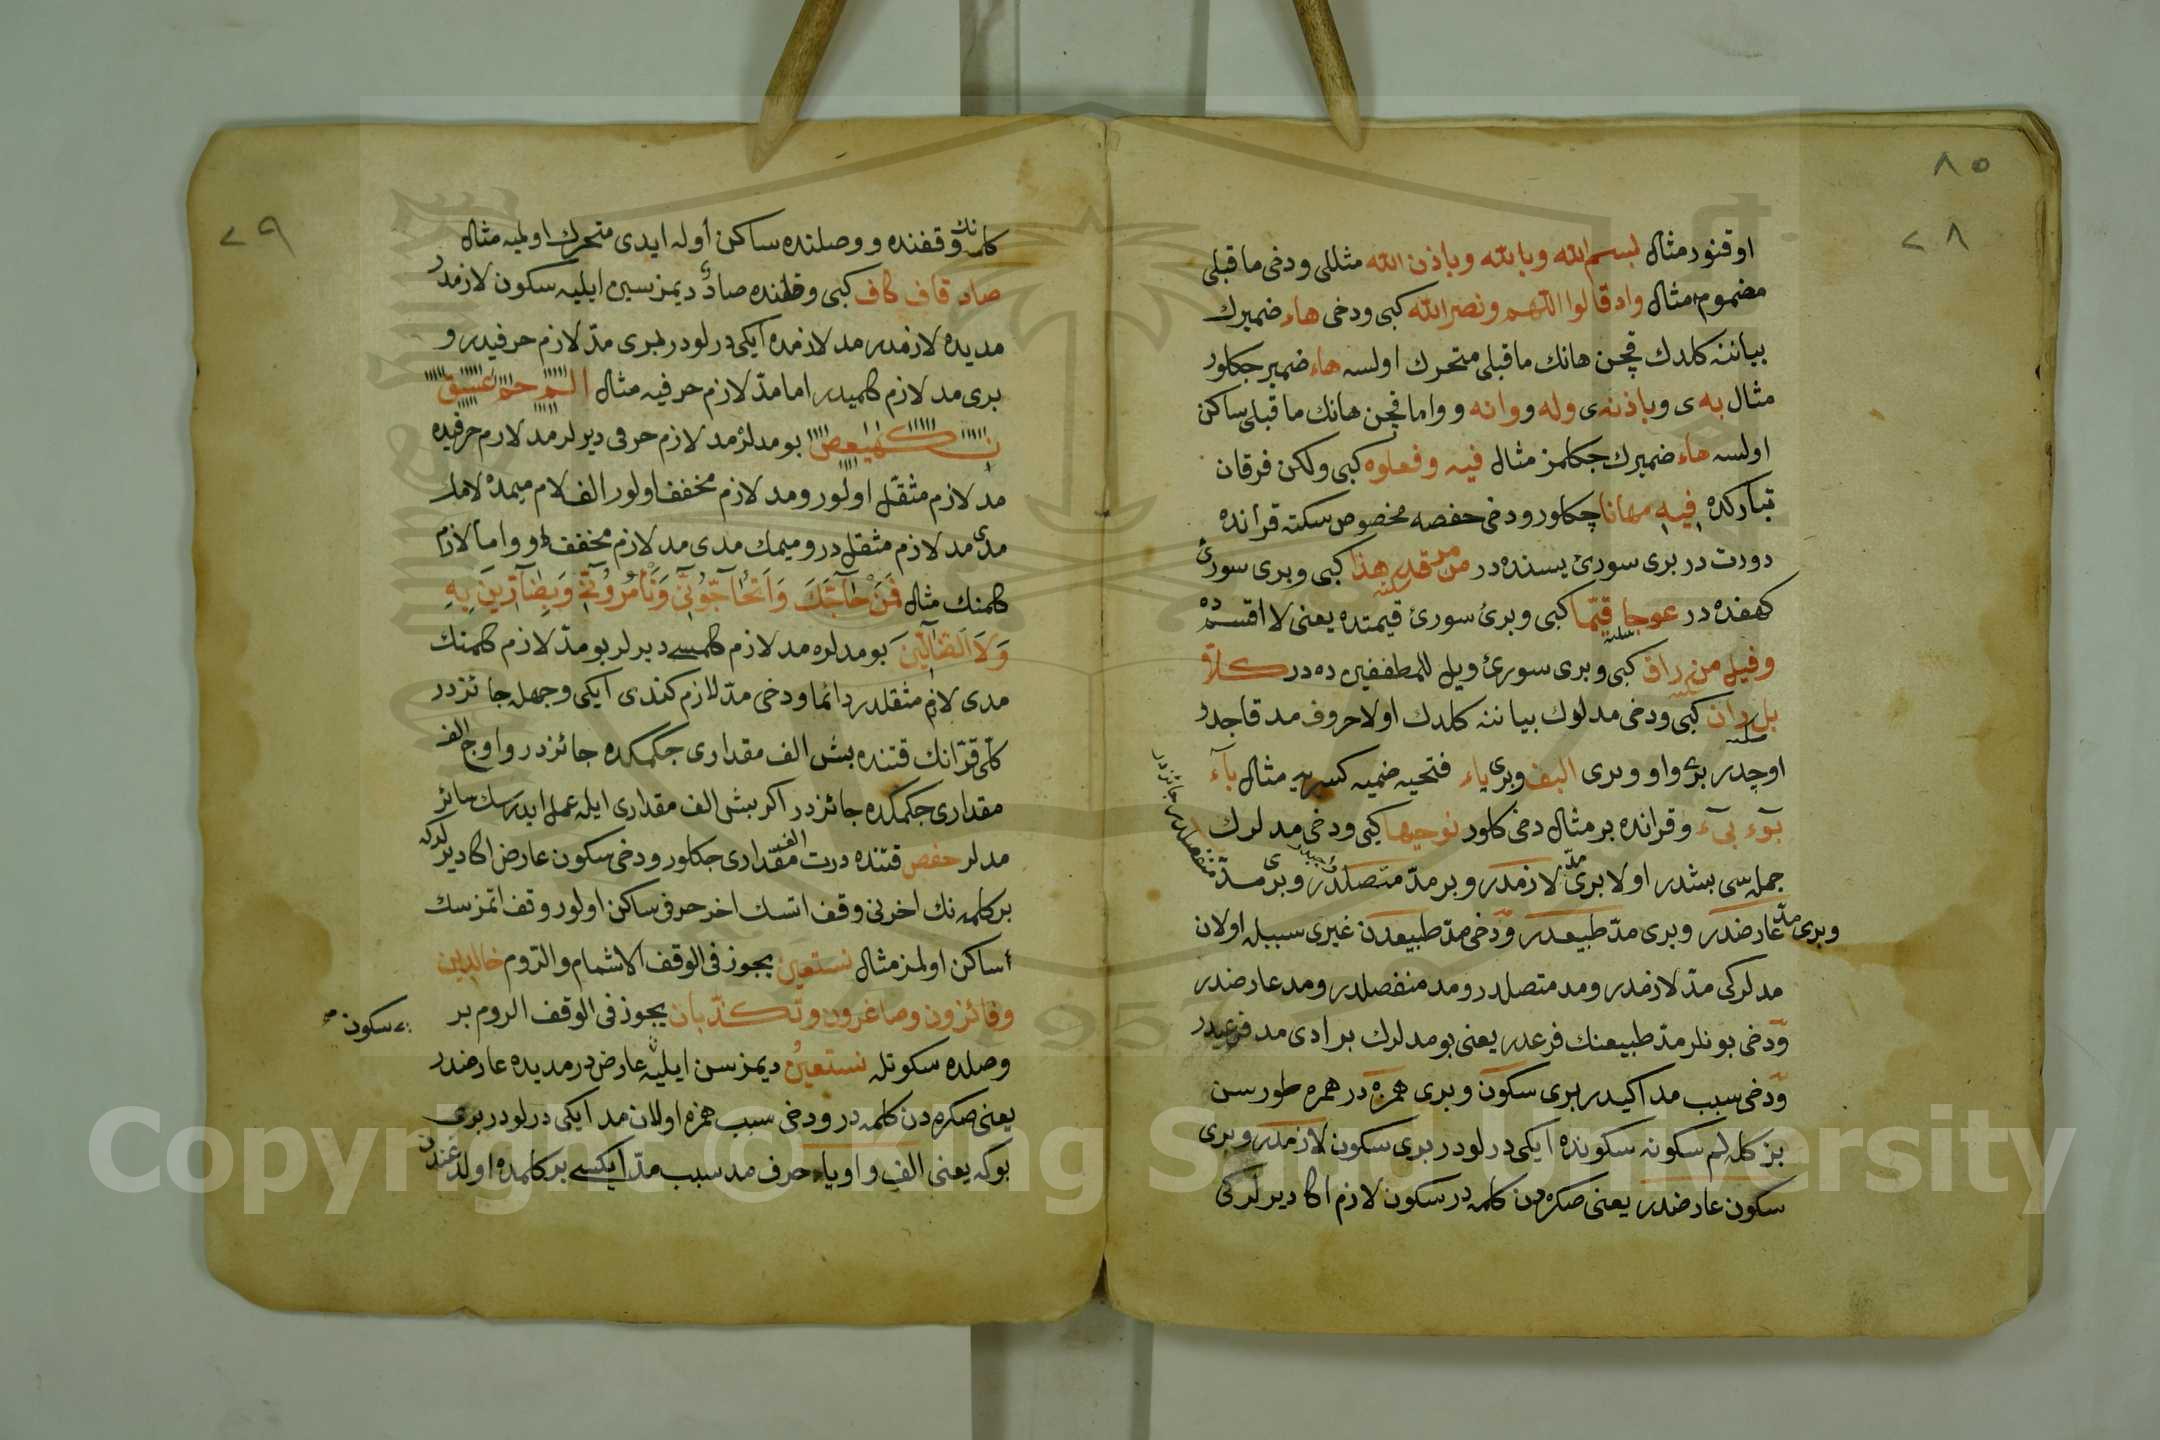 ٨٥
٢٨
اوقنور مثال بسم الله وبالله وباذن الله مثللى ودخى ما قبلى
مضموم مثال واد قالوا اللهم ونصر الله كبى ودخى هاء ضميرك
بياننه كلدك قچن هانك ما قبلى متحرك اولسه هاء ضمير چكلور
مثال به ى وباذنه ى وله و وانه و واما قچن هانك ما قبلى ساكن
اولسه هاء ضميرك چكلمز مثال فيه وفعلوه كبى ولكن فرقان
تباركده فيه مهانا چكلور ودخى حفصه مخصوص سكته قرانده
دورت در برى سورۀ يسنده در من مرقدنا هذا كبى وبرى سورۀ
كهفده در عوجا قيما كبى وبرى سورۀ قيمتده يعنى لا اقسمده
وقيل من راق كبى وبرى سورۀ ويل للمطففين ده در كلا
بل ران كبى ودخى مدلوك بياننه كلدك اولا حروف مد قاچدر
اوچدر برى واو وبرى الف وبرى ياء فتحيه ضميه كسريه مثال بآء
بوء بىء وقرانده بر مثال دخى كلور نوحيها كبى ودخى مدلرك
جمله سى بشدر اولا برى مد لازمدر وبر مد متصلدر وبرى مد منفصلدر جائزدر
وبرى مد عارضدر وبرى مد طبيعدر ودخى مد طبيعدن غيرى سببله اولان
مدلركى مد لازمدر ومد متصلدر ومد منفصلدر ومد عارضدر
ودخى بونلر مد طبيعنك فرعدر يعنى بو مدلرك بر ادى مد فرعيدر
ودخى سبب مد اكيدر برى سكون وبرى همزه در همزه طورسن
بز كله لم سكونه سكونده ايكى درلودر برى سكون لازمدر وبرى
سكون عارضدر يعنى صكره دن كلمه در سكون لازم اكا ديرلركى
٢٩
كلمه نك وقفنده و وصلنده ساكن اوله ايدى متحرك اولميه مثال
صاد قاف كاف كبى وصلنده صادُ ديمز سين ايليه سكون لازمدر
مديده لازمدر مد لازمده ايكى درلودر برى مد لازم حرفيدر و
برى مد لازم كلميدر اما مد لازم حرفيه مثال الم حم عسق
ن كهيعص بو مدلره مد لازم حرفى ديرلر مد لازم حرفيده
مد لازم مثقل اولور ومد لازم مخفف اولور الف لام ميمده لامك
مدى مد لازم مثقلدر وميمك مدى مد لازم مخففدر واما لازم
كلمنك مثال فَمَنْ حَآجَّكَ وَاَتُحَآجُّونِّى وَتَأْمُرُونِّى وَبِضَآرِّينَ بِهِ
وَلَا الضَّآلِّينَ بو مدلره مد لازم كلمسى ديرلر بو مد لازم كلمنك
مدى لازم مثقلدر دائما ودخى مد لازم كندى ايكى وجهله جائزدر
كلى قرانك قتنده بش الف مقدارى چكمكده جائزدر واوچ الف
مقدارى چكمكده جائزدر اكر بش الف مقدارى ايله عمل ايدرسك سائر
مدلر حفص قتنده درت الف مقدارى چكلور ودخى سكون عارض اكا ديرلركه
بر كلمه نك اخرنى وقف اتسك اخر حرفى ساكن اولور وقف اتمزسك
ساكن اولمز مثال نستعين يجوز فى الوقف الاشمام والروم خالدين
وفائزون وما غرون وتكذبان يجوز فى الوقف الروم بر
سكون
وصلده سكوتله نستعينُ ديمزسن ايليه عارضدر مديده عارضدر
يعنى صكره دن كلمه در ودخى سبب همزه اولان مد ايكى درلودر برى
بوكه يعنى الف واو ياء حرف مد سبب مد ايكسى بر كلمده اولد